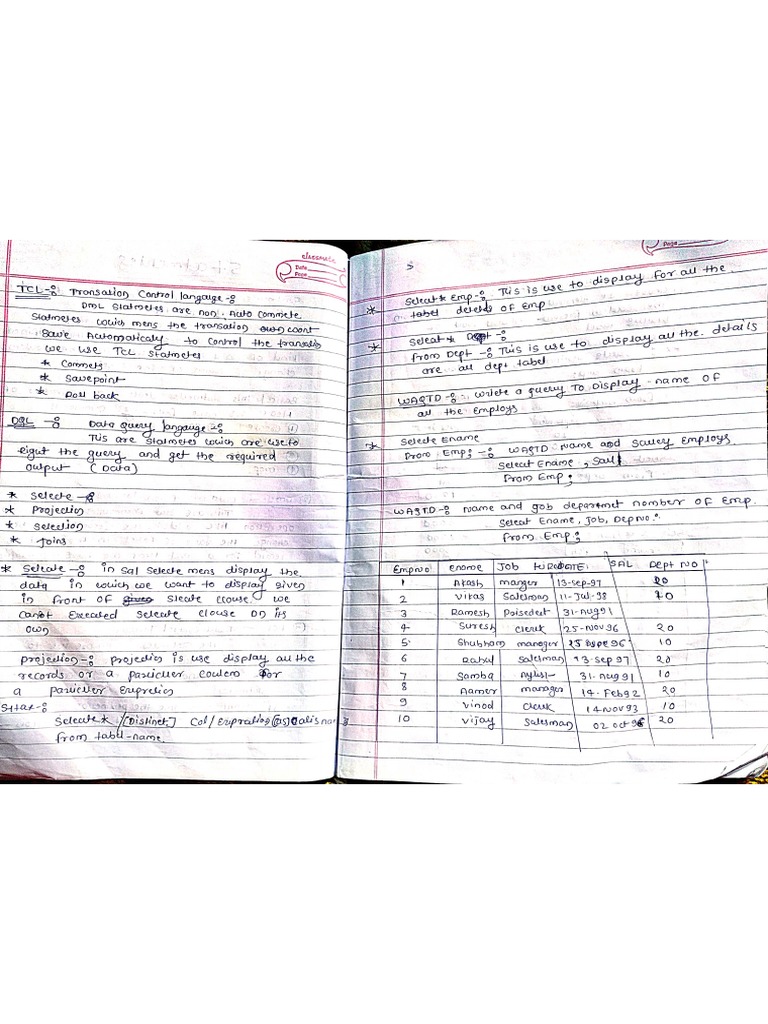 classmate
Date
Page
TCL -: Transation Control langauge -:
DML Statmetes are non Auto Commete
Statmetes which mens the transation count
Save Automatically to control the transation
we use TCL statmetes
* Commets
* Savepoint
* Roll back
DQL -: Data Query langauge -:
This are statmetes which are use to
right the query and get the required
output (Data)
* Selecte -:
* Projection
* Selection
* Joins
* Selcate -: in Sql Selecte mens display the
data in which we want to display given
in front of slecate clouse we
canot Executed selecate clouse on its
own
projection -: projection is use display all the
records or a particuler coulem for
a particuler
Sytax -:
Selecate * / [Distinct] Col / Expration
from tabel-name.
Page
5
* Selecat * Emp -: This is use to display for all the
tabel deteles of Emp
* Selecat * Dept -:
from Dept -: This is use to display all the details
are all dept tabel
WAQTD -: write a query To Display name OF
all the Employs
* Selecte Ename
From Emp; -: WAQTD Name and Salley Employs
Selecat Ename, Sal
From Emp;
WAQTD -: Name and gob department nomber OF Emp.
Selecat Ename, Job, Depno.
From Emp;
EmpNo ename Job HIREDATE SAL Dept NO
1 Akash manger 13-sep-97 20
2 Vikas Salesman 11-Jul-98
3 Ramesh Poisedent 31-Aug91
4 Suresh Clerk 25-Nov 96 20
5 Shubham manager 25 96 10
6 Rahul salesman 13-sep 97 20
7 Samba 31-Aug 91 10
8 Aamer manager 14-Feb92 20
9 Vinod Clerk 14 Nov 93 10
10 Vijay Salesman 02 oct 96 20